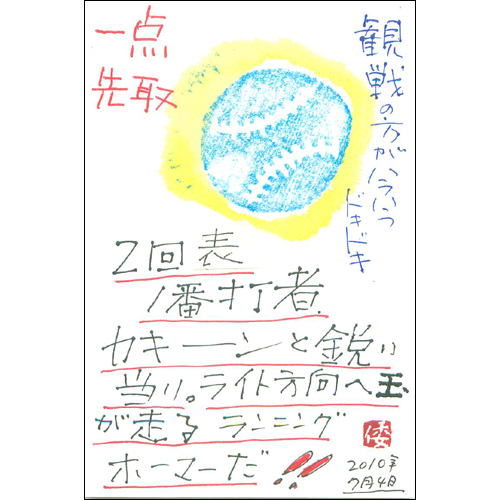 一点
先取
観戦の方がハラハラ
ドキドキ
2回表
1番打者
カキーンと鋭い
当り。ライト方向へ玉
が走る ランニング
ホーマーだ!!
倭
2010年
7月4日